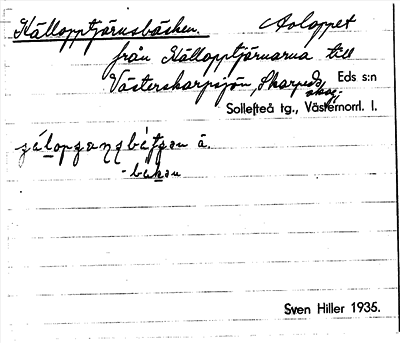 Källopptjärnsbäcken. Avloppet
från Källopptjärnarna till
Västerskarpsjön, Skarpeds Eds s:n
skog.
Sollefteå tg., Västernorrl. l.
- bäkan
Sven Hiller 1935.